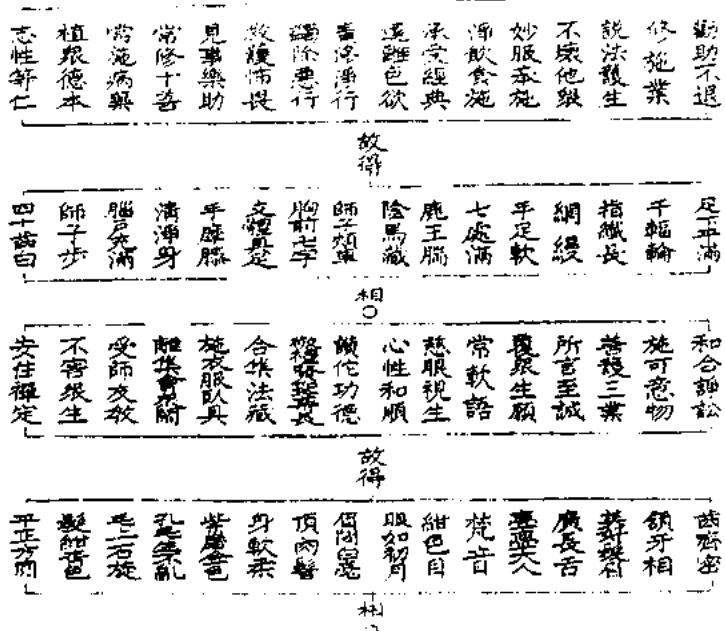 勸助不退
修施業
說法護生
不壞他眾
妙服奉施
淨飲食施
承受經典
遠離色欲
淨行
蠲除惡行
救護怖畏
見事樂助
常修十善
常施病藥
植眾德本
志性等仁
故得
足下平滿
千輻輪
指纖長
網縵
手足軟
七處滿
鹿王腨
陰馬藏
師子頰車
胸前卍字
支體具足
手摩膝
清淨身
腦戶充滿
師子步
四十齒白
相
和合諍訟
施可意物
善護三業
所言至誠
眾生願
常軟語
慈眼視生
心性和順
讚佗功德
合集法藏
施衣服臥具
離集會眾鬧
受師友教
不害眾生
安住禪定
故得
齒齊密
頷牙相
廣長舌
梵音
紺色目
眼如初月
眉間白毫
頂肉髻
身軟柔
紫磨金色
毛上右旋
髮紺青色
平正方圓
相